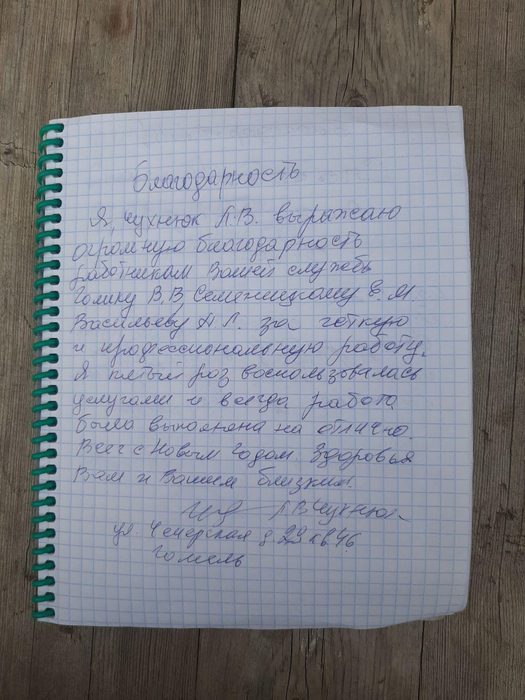 Благодарность
Я, Чухнюк Л.В. выражаю
огромную благодарность
работникам Вашей службы
Голику В.В Семеницкому Е.М.
Васильеву А.Л. за чёткую
и профессиональную работу.
Я пятый роз воспользовалась
услугами и всегда работа
была выполнена на отлично.
Всех с Новым Годом. Здоровья
Вам и Вашим близким.
Л.В Чухнюк
ул. Чечерская д 29 кв. 46
Гомель